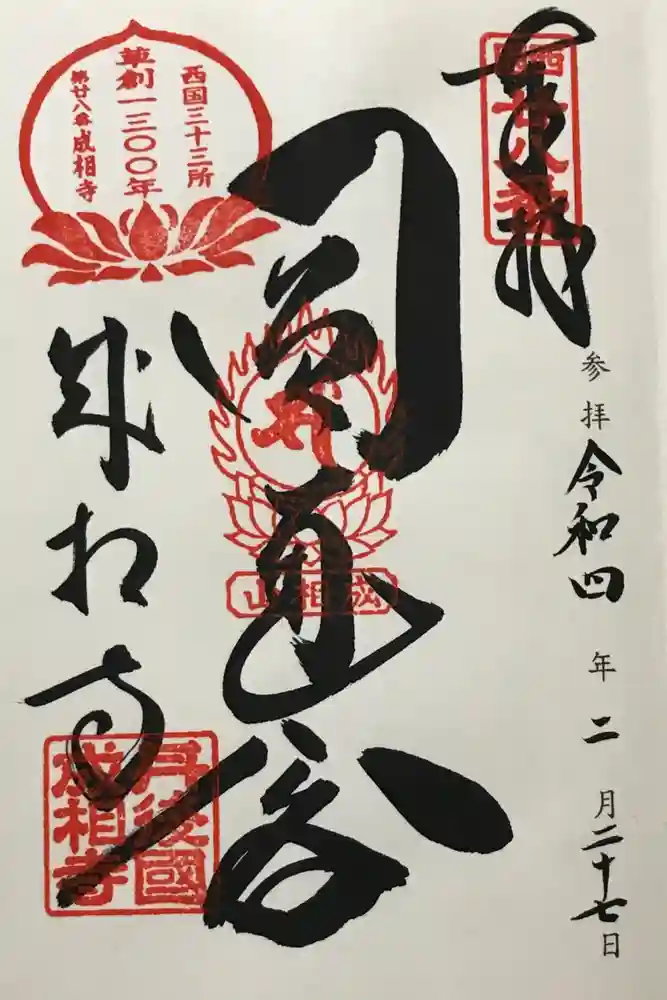 奉拝
西國
廿八番
参拝 令和四年二月二十七日
圓通閣
成相山
西国三十三所
草創一三〇〇年
第廿八番 成相寺
成相寺
丹後國
成相寺